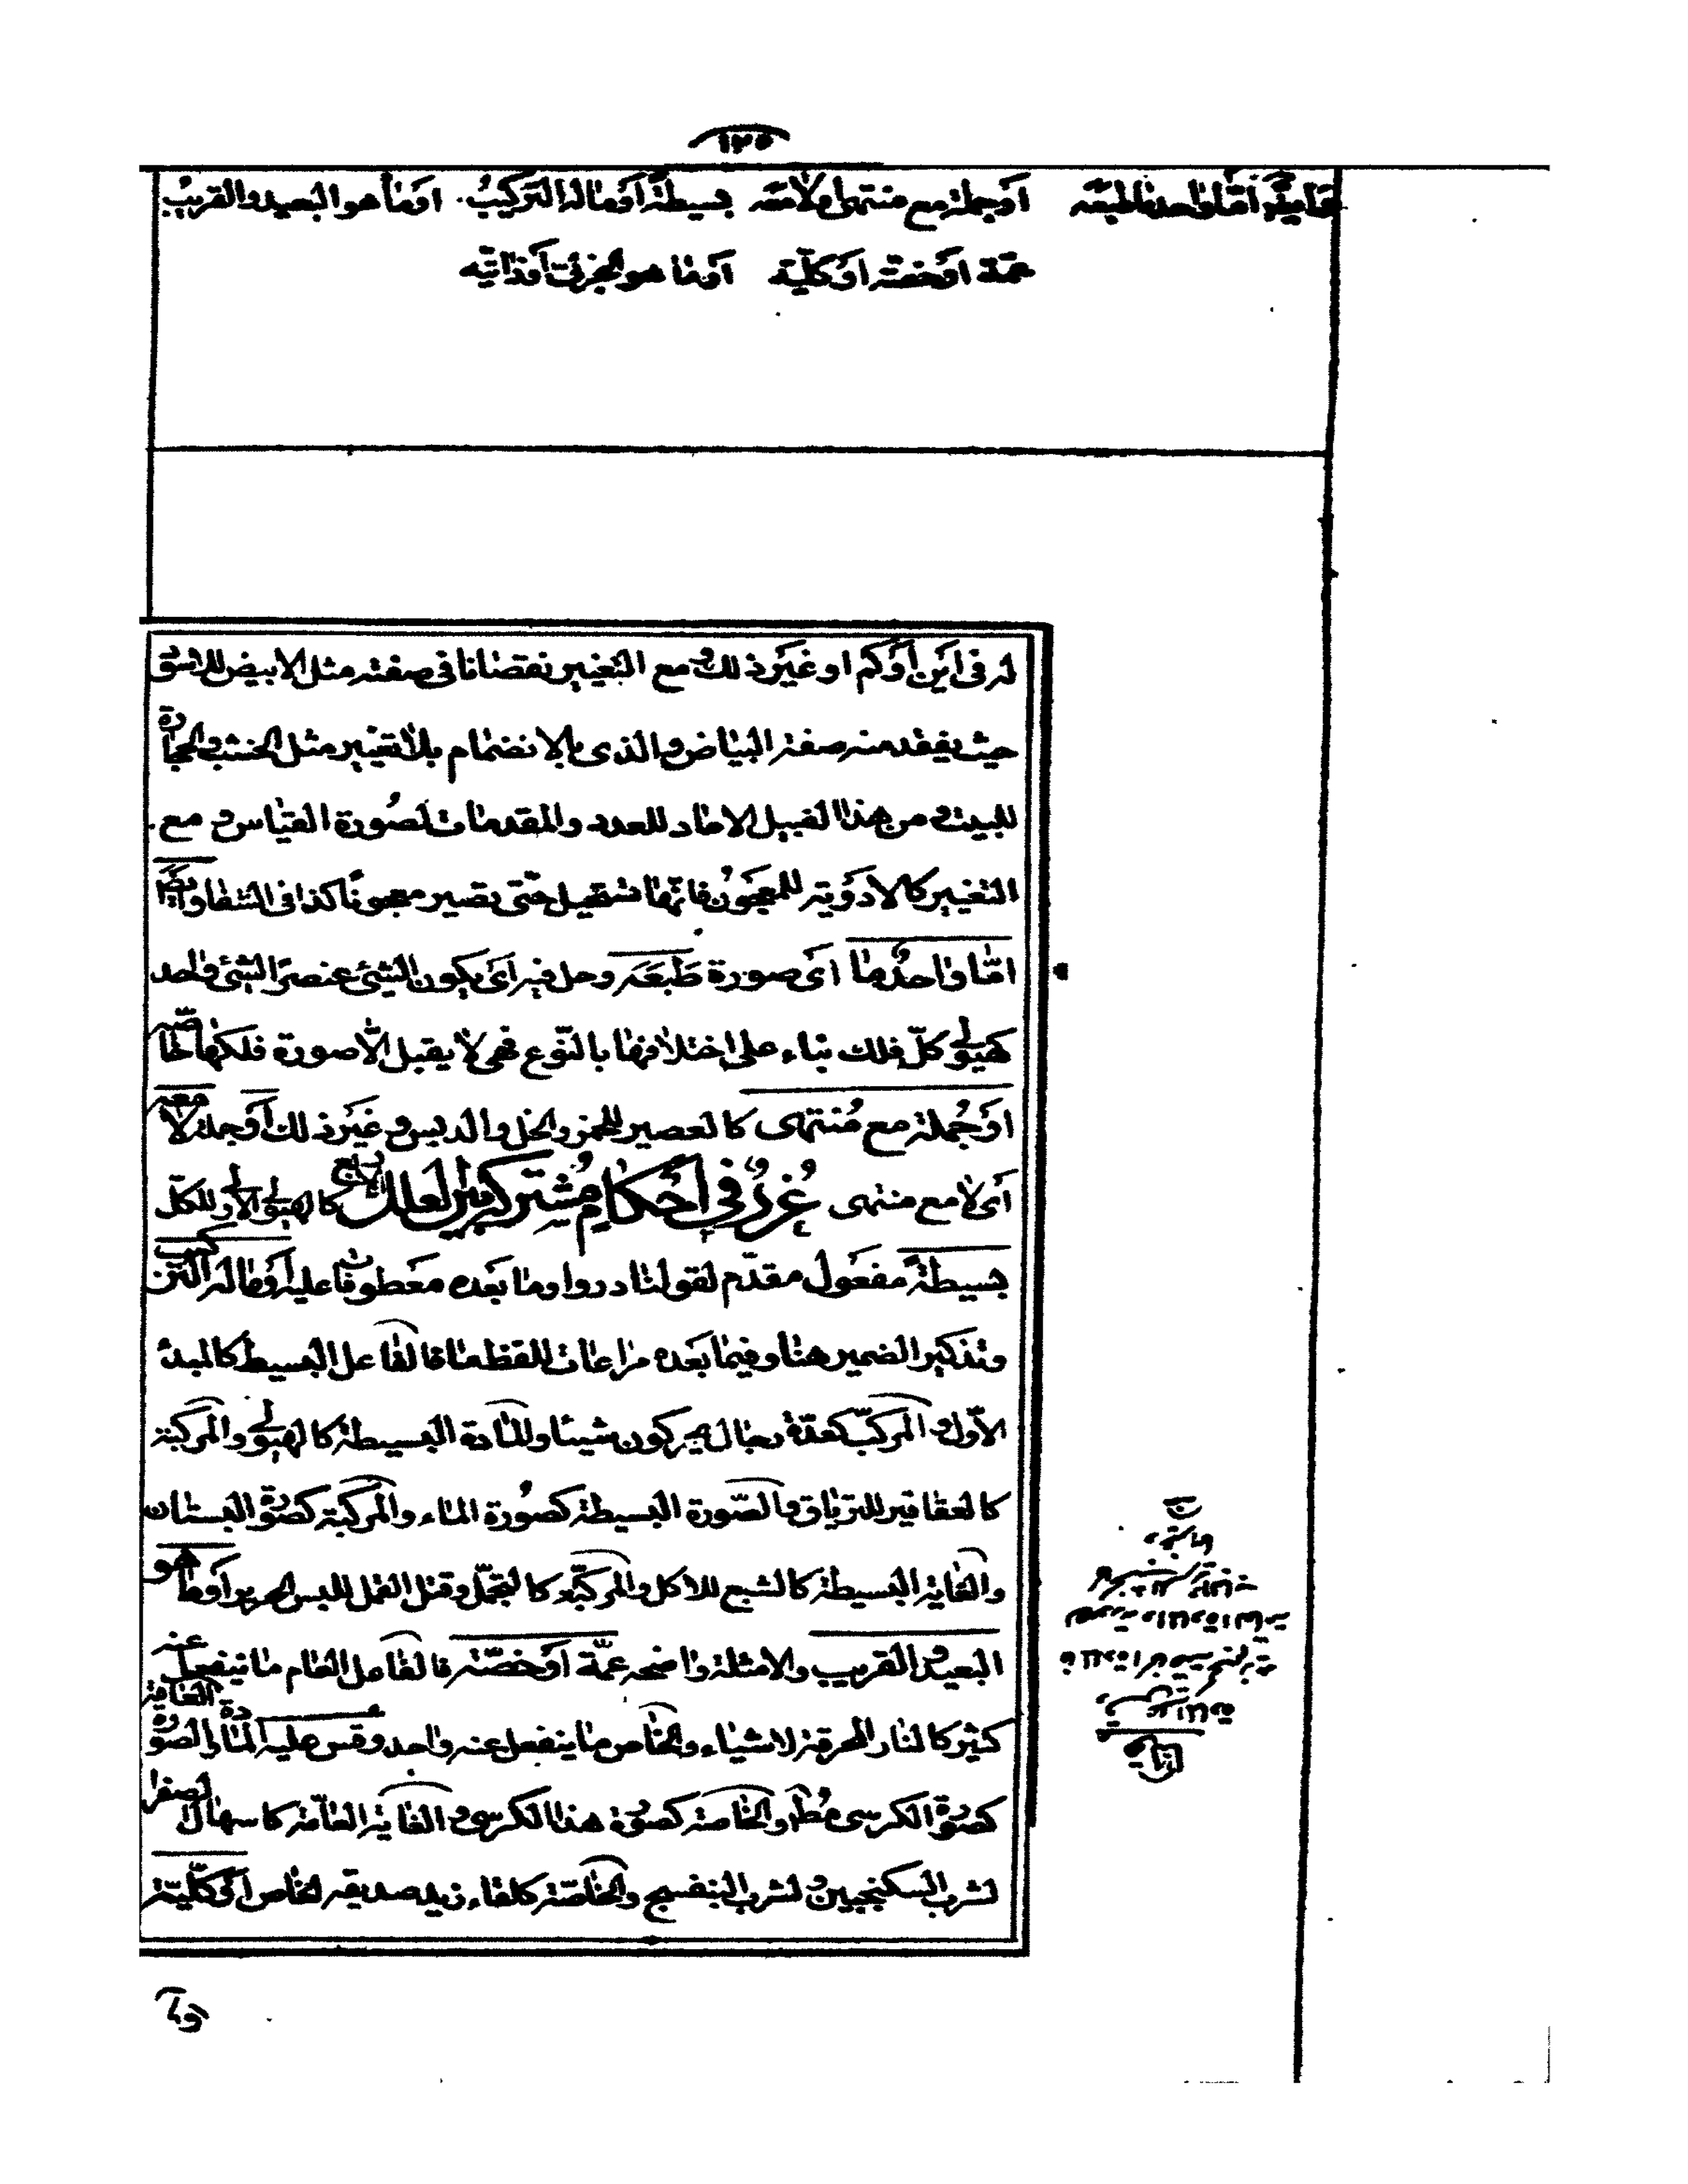 ١٢٥
اما واحدا ما طبعه او جملة مع منتهى ولا معه بسيطة او ما له التركيب او ما هو البعيد والقريب
عمة او خصته او كلية او ما هو الجزئى او ذاتيه
له فى اَين أو كم او غير ذلك و مع التغيير نقصانا فى صفته مثل الابيض للاسود
حيث يفقد منه صفة البياض والذى بالانضمام بلا تغيير مثل الخشب والحجارة
للبيت و من هذا القبيل الاحاد للعدد والمقدمات لصُورة القياس و مع
التغيير كالادوية للمعجون فانها تستحيل حتى تصير معجونا كذا فى الشفا وايضا
امّا واحدٌ ما اى صورة طبعه وحل فيه اى يكون الشئ عنصر الشئ واحد
كهيولى كلّ فلك بناء على اختلافها بالنّوع فهى لا يقبل الّا صورة فلكها الخاصّة
اوجُملة مع مُنتهى كالعصير للخمر والخل والدبس و غير ذلك أو جملة لا معه
اى لا مع منتهى غُررٌ فى احكام مُشتركة بين العلل الاربع كالهيولى الاولى للكلّ
بسيطةً مفعول مقدّم لقولنا دروا وما بعده معطوفا عليه أو ما له التركيب
وتذكير الضمير هنا وفيما بعده مراعات للفظ ما فالفاعل البسيط كالمبدء
الاوّل و المركبّ كعدّة رجال يحركون شيئا وللمادة البسيطة كالهيولى والمركبة
كالعقاقير للترياق والصّورة البسيطة كصُورة الماء والمركبة كصورة البستان
والغاية البسيطة كالشبع للاكل والمركبّة كالتجمّل وقتل القمل للبس الحرير او ما هو
البعيد و القريب والامثلة واضحه عمّة أو خصّته فالفاعل العام ما ينفعل عنه
كثير كالنار المحرقة لاشياء والخاص ما ينفعل عنه واحد وقس عليه المادة و الصورة العامة
كصورة الكرسى مط والخاصة كصورة هذا الكرسى و الغاية العامّة كاسهال الصفرا
لشرب السكنجبين و لشرب البنفسج والخاصّة كلقاء زيد صديقه الخاص او كليّة